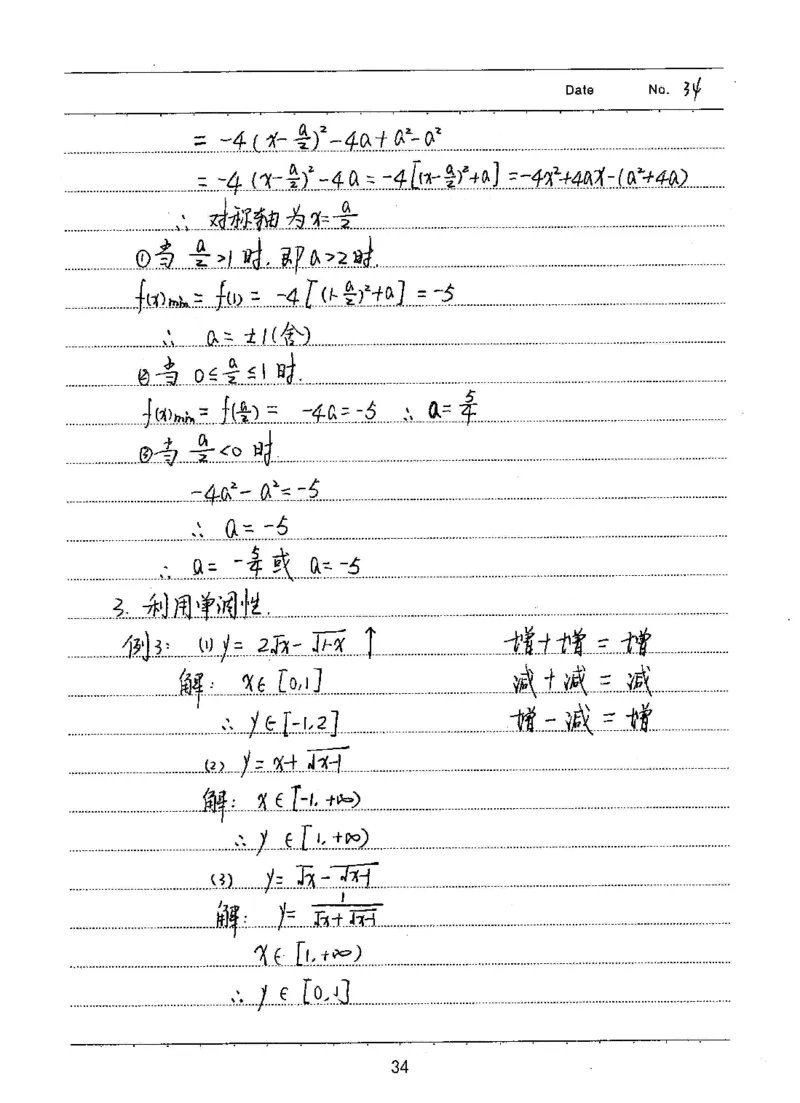 Date No. 34
= -4(x-a/2)²-4a+a²-a²
= -4(x-a/2)²-4a = -4[(x-a/2)²+a] = -4x²+4ax-(a²+4a)
∴ 对称轴为x=a/2
①当 a/2>1时.即a>2时.
f(x)min = f(1) = -4[(1-a/2)²+a] = -5
∴ a=±1(舍)
②当 0≤a/2≤1时.
f(x)min = f(a/2) = -4a=-5 ∴ a=5/4
③当 a/2<0时
-4a²-a²=-5
∴ a=-5
∴ a= -5/4 或 a=-5
3. 利用单调性.
例3: (1) y= 2√x-√1-x ↑ 增+增=增
解: x∈[0,1] 减+减=减
∴ y∈[-1,2] 增-减=增
(2) y= x+√x-1
解: x∈[-1,+∞)
∴ y∈[1,+∞)
(3) y= √x-√x-1
解: y= 1/(√x+√x-1)
x∈[1,+∞)
∴ y∈[0,1]
34